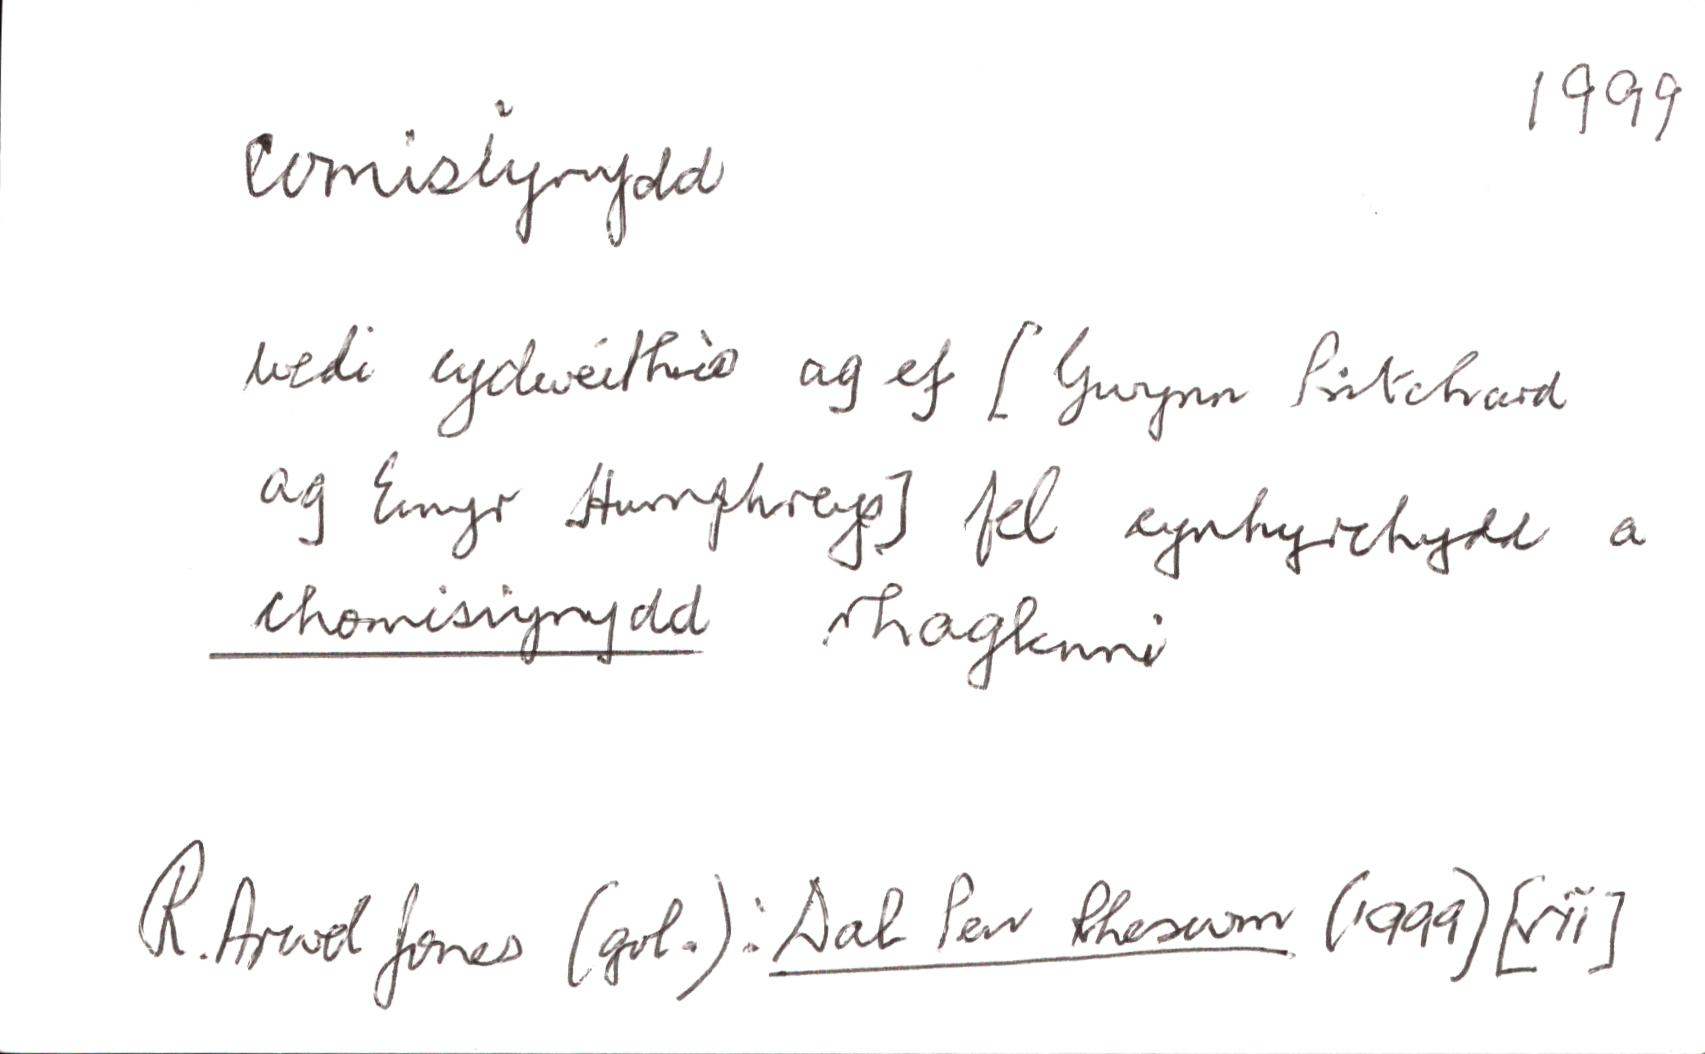 1999
comisiynydd
wedi cydweithio ag ef [Gwynn Pritchard
ag Emyr Humphreys] fel cynhyrchydd a
chomisiynydd rhaglenni
R. Arwel Jones (gol.): Dal Pen Rheswm (1999) [vii]